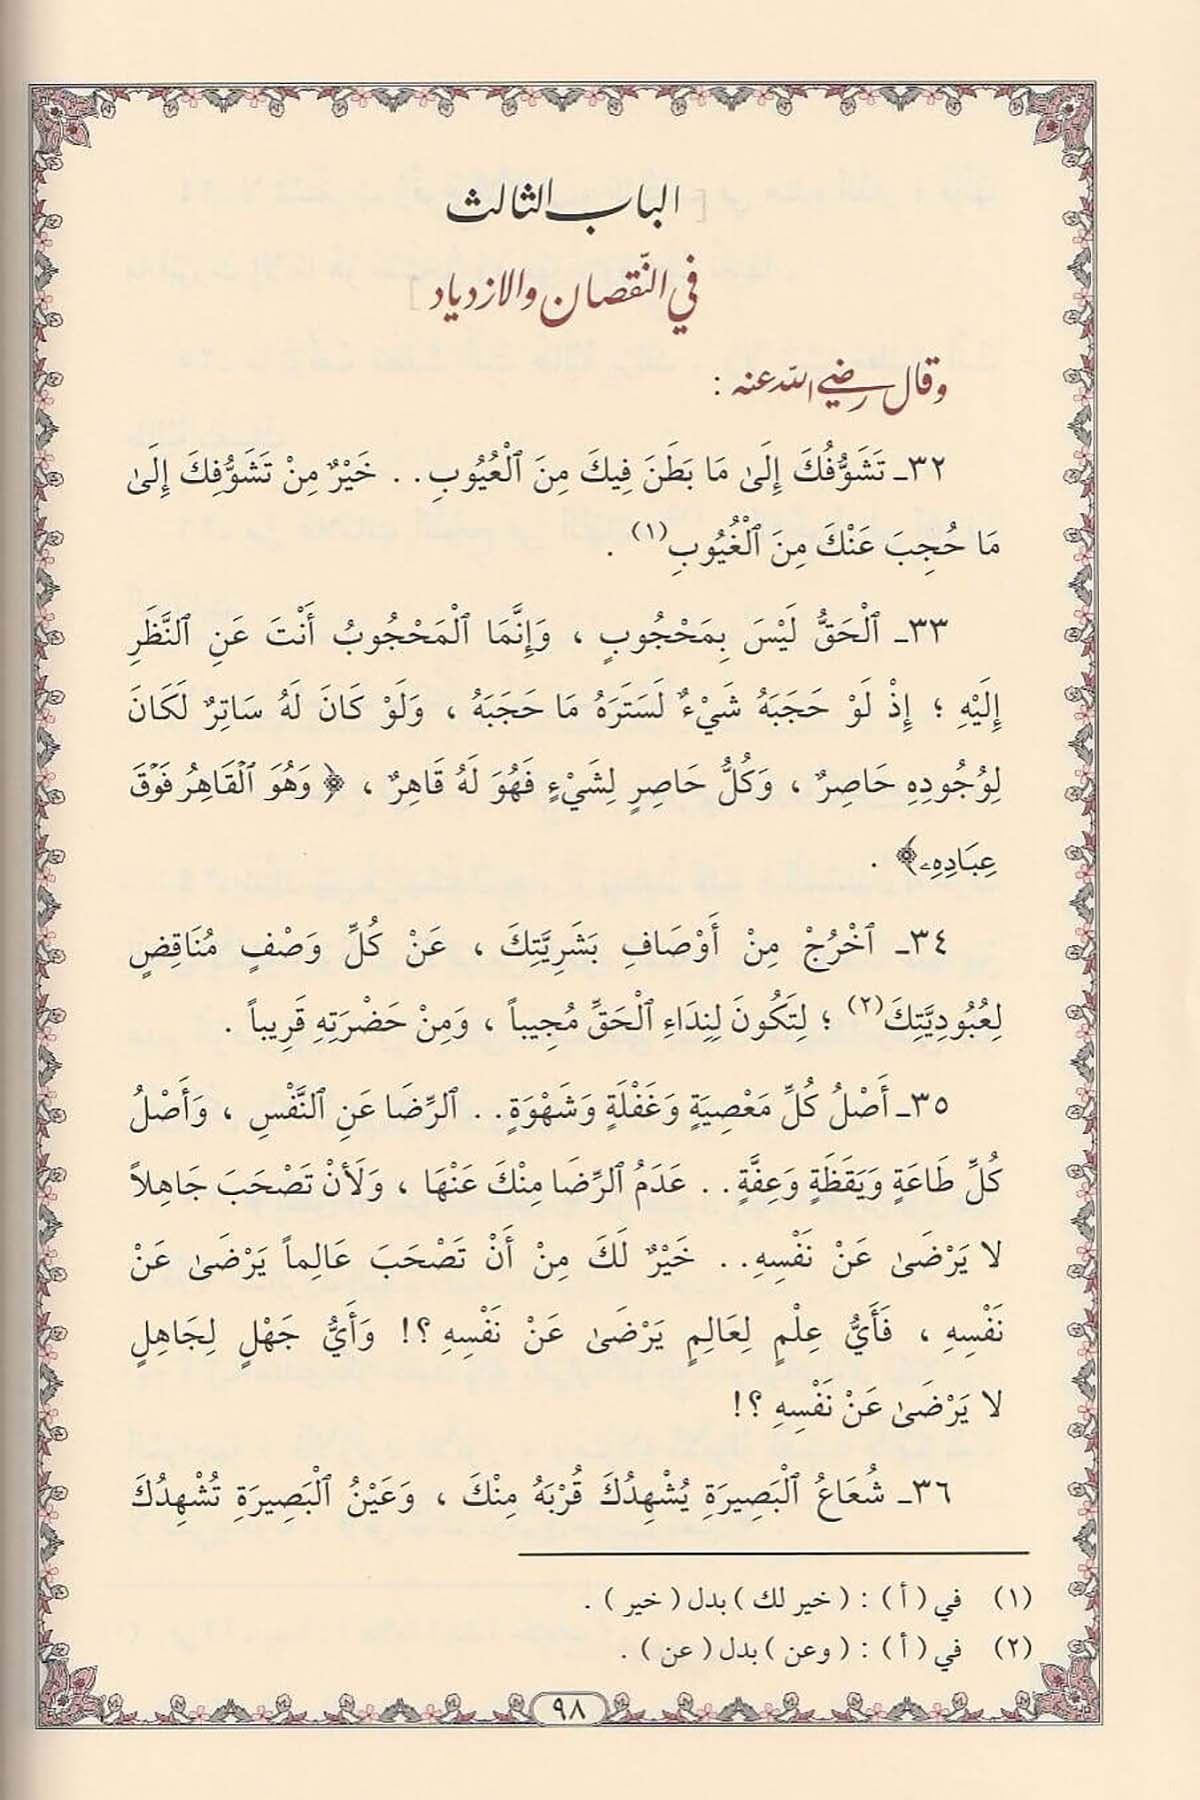 [ الباب الثالث
في النّقصان والازدياد ]
وقال رضي الله عنه :
٣٢ـ تَشَوُّفُكَ إِلَىٰ مَا بَطَنَ فِيكَ مِنَ ٱلْعُيُوبِ . . خَيْرٌ مِنْ تَشَوُّفِكَ إِلَىٰ
مَا حُجِبَ عَنْكَ مِنَ ٱلْغُيُوبِ(١) .
٣٣ـ ٱلْحَقُّ لَيْسَ بِمَحْجُوبٍ ، وَإِنَّمَا ٱلْمَحْجُوبُ أَنْتَ عَنِ ٱلنَّظَرِ
إِلَيْهِ ؛ إِذْ لَوْ حَجَبَهُ شَيْءٌ لَسَتَرَهُ مَا حَجَبَهُ ، وَلَوْ كَانَ لَهُ سَاتِرٌ لَكَانَ
لِوُجُودِهِ حَاصِرٌ ، وَكُلُّ حَاصِرٍ لِشَيْءٍ فَهُوَ لَهُ قَاهِرٌ ، ﴿ وَهُوَ ٱلْقَاهِرُ فَوْقَ
عِبَادِهِۦ﴾ .
٣٤ـ ٱخْرُجْ مِنْ أَوْصَافِ بَشَرِيَّتِكَ ، عَنْ كُلِّ وَصْفٍ مُنَاقِضٍ
لِعُبُودِيَّتِكَ(٢) ؛ لِتَكُونَ لِنِدَاءِ ٱلْحَقِّ مُجِيباً ، وَمِنْ حَضْرَتِهِ قَرِيباً .
٣٥ـ أَصْلُ كُلِّ مَعْصِيَةٍ وَغَفْلَةٍ وَشَهْوَةٍ . . ٱلرِّضَا عَنِ ٱلنَّفْسِ ، وَأَصْلُ
كُلِّ طَاعَةٍ وَيَقَظَةٍ وَعِفَّةٍ . . عَدَمُ ٱلرِّضَا مِنْكَ عَنْهَا ، وَلَأَنْ تَصْحَبَ جَاهِلاً
لا يَرْضَىٰ عَنْ نَفْسِهِ . . خَيْرٌ لَكَ مِنْ أَنْ تَصْحَبَ عَالِماً يَرْضَىٰ عَنْ
نَفْسِهِ ، فَأَيُّ عِلْمٍ لِعَالِمٍ يَرْضَىٰ عَنْ نَفْسِهِ ؟! وَأَيُّ جَهْلٍ لِجَاهِلٍ
لا يَرْضَىٰ عَنْ نَفْسِهِ ؟!
٣٦ـ شُعَاعُ ٱلْبَصِيرَةِ يُشْهِدُكَ قُرْبَهُ مِنْكَ ، وَعَيْنُ ٱلْبَصِيرَةِ تُشْهِدُكَ
(١) في ( أ ) : ( خير لك ) بدل ( خير ) .
(٢) في ( أ ) : ( وعن ) بدل ( عن ) .
٩٨